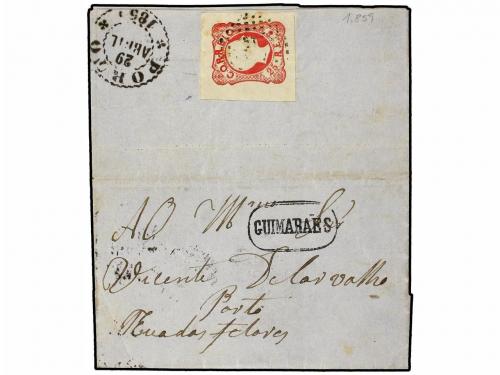 1.859
PORTO
29
ABRIL
185
CORREIO 25 REIS
GUIMARAES
A O Mmo Sr
Vicente De Carvalho
Porto
Rua das Flores